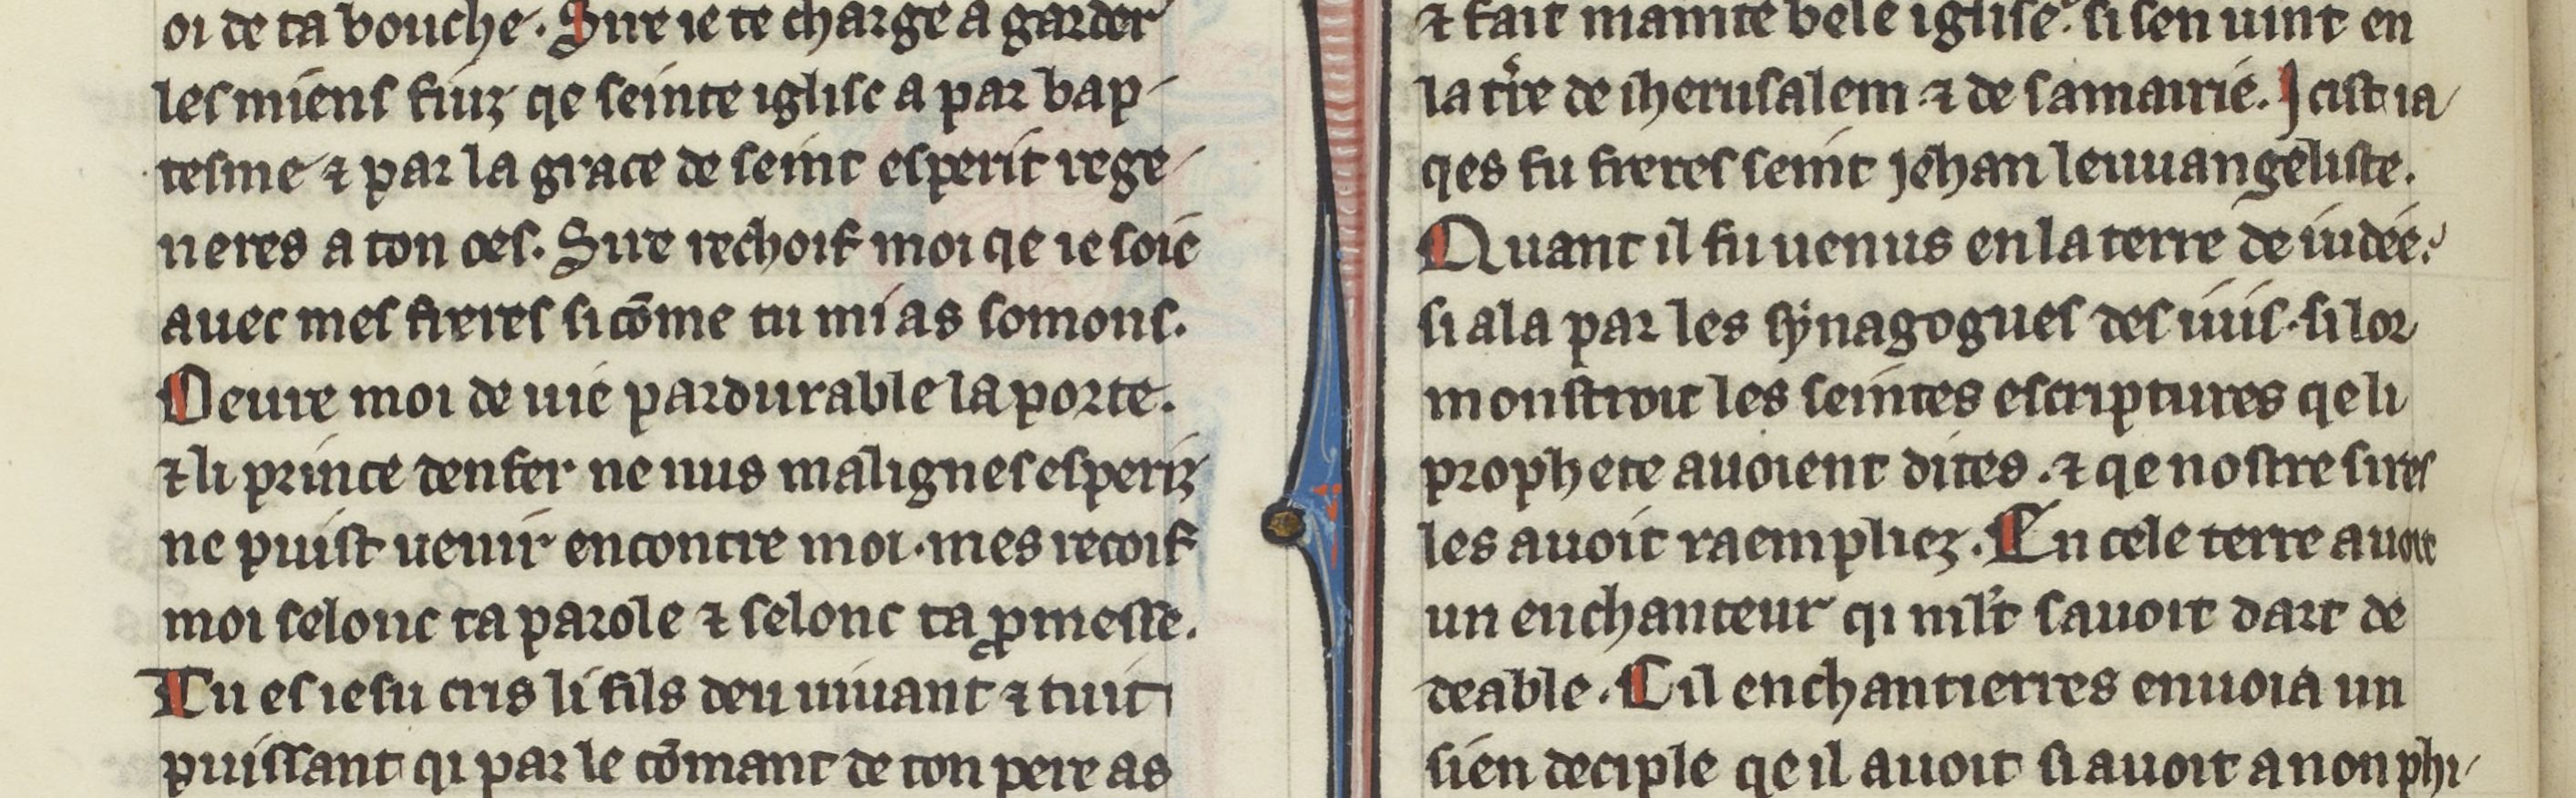 oi de ta bouche. Sire ie te charge a garder
les miens fiuz qe seinte iglise a par bap-
tesme ⁊ par la grace de seint esperit rege-
neres a ton oes. Sire rechoif moi qe ie soie
auec mes freres si cōme tu mi as somons.
Oeure moi de uie pardurable la porte.
⁊ li prince denfer ne nus malignes esperiz
ne puist uenir encontre moi. mes recoif
moi selonc ta parole ⁊ selonc ta ꝓmesse.
Tu es iesu cris li fils deu uiuant ⁊ tuit
puissant qi par le cōmant de ton pere as
⁊ fait mainte bele iglise. si sen uint en
la tr̄e de iherusalem ⁊ de samairie. Icist ia
qes fu freres seint jehan leuuangeliste.
Quant il fu uenus en la terre de iudee.
si ala par les synagogues des iuis. si lor
monstroit les seintes escriptures qe li
prophete auoient dites. ⁊ qe nostre sires
les auoit raempliez. En cele terre auoit
un enchanteur qi ml't sauoit dart de
deable. Cil enchantierres enuoia un
sien deciple qe il auoit si auoit a non phi-